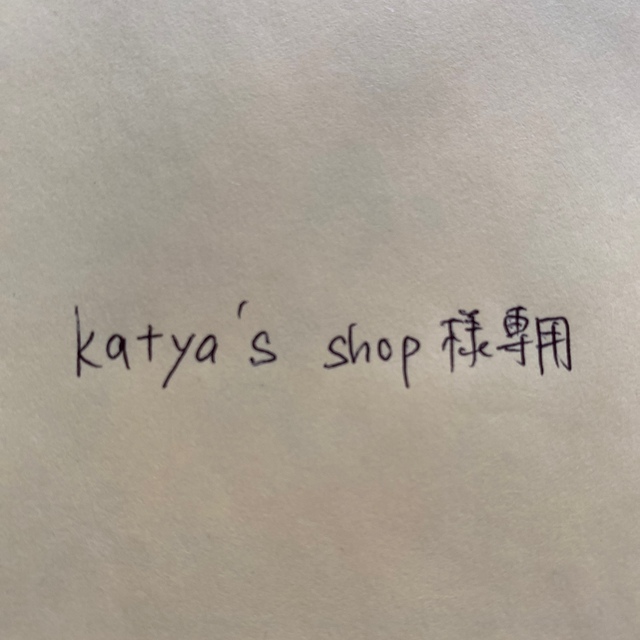 katya's shop様専用